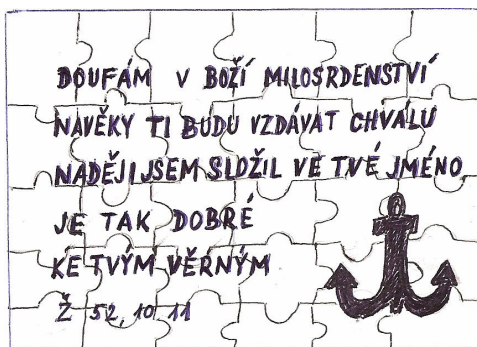 DOUFÁM V BOŽÍ MILOSRDENSTVÍ
NAVĚKY TI BUDU VZDÁVAT CHVÁLU
NADĚJI JSEM SLOŽIL VE TVÉ JMÉNO,
JE TAK DOBRÉ
KE TVÝM VĚRNÝM
Ž 52, 10 11